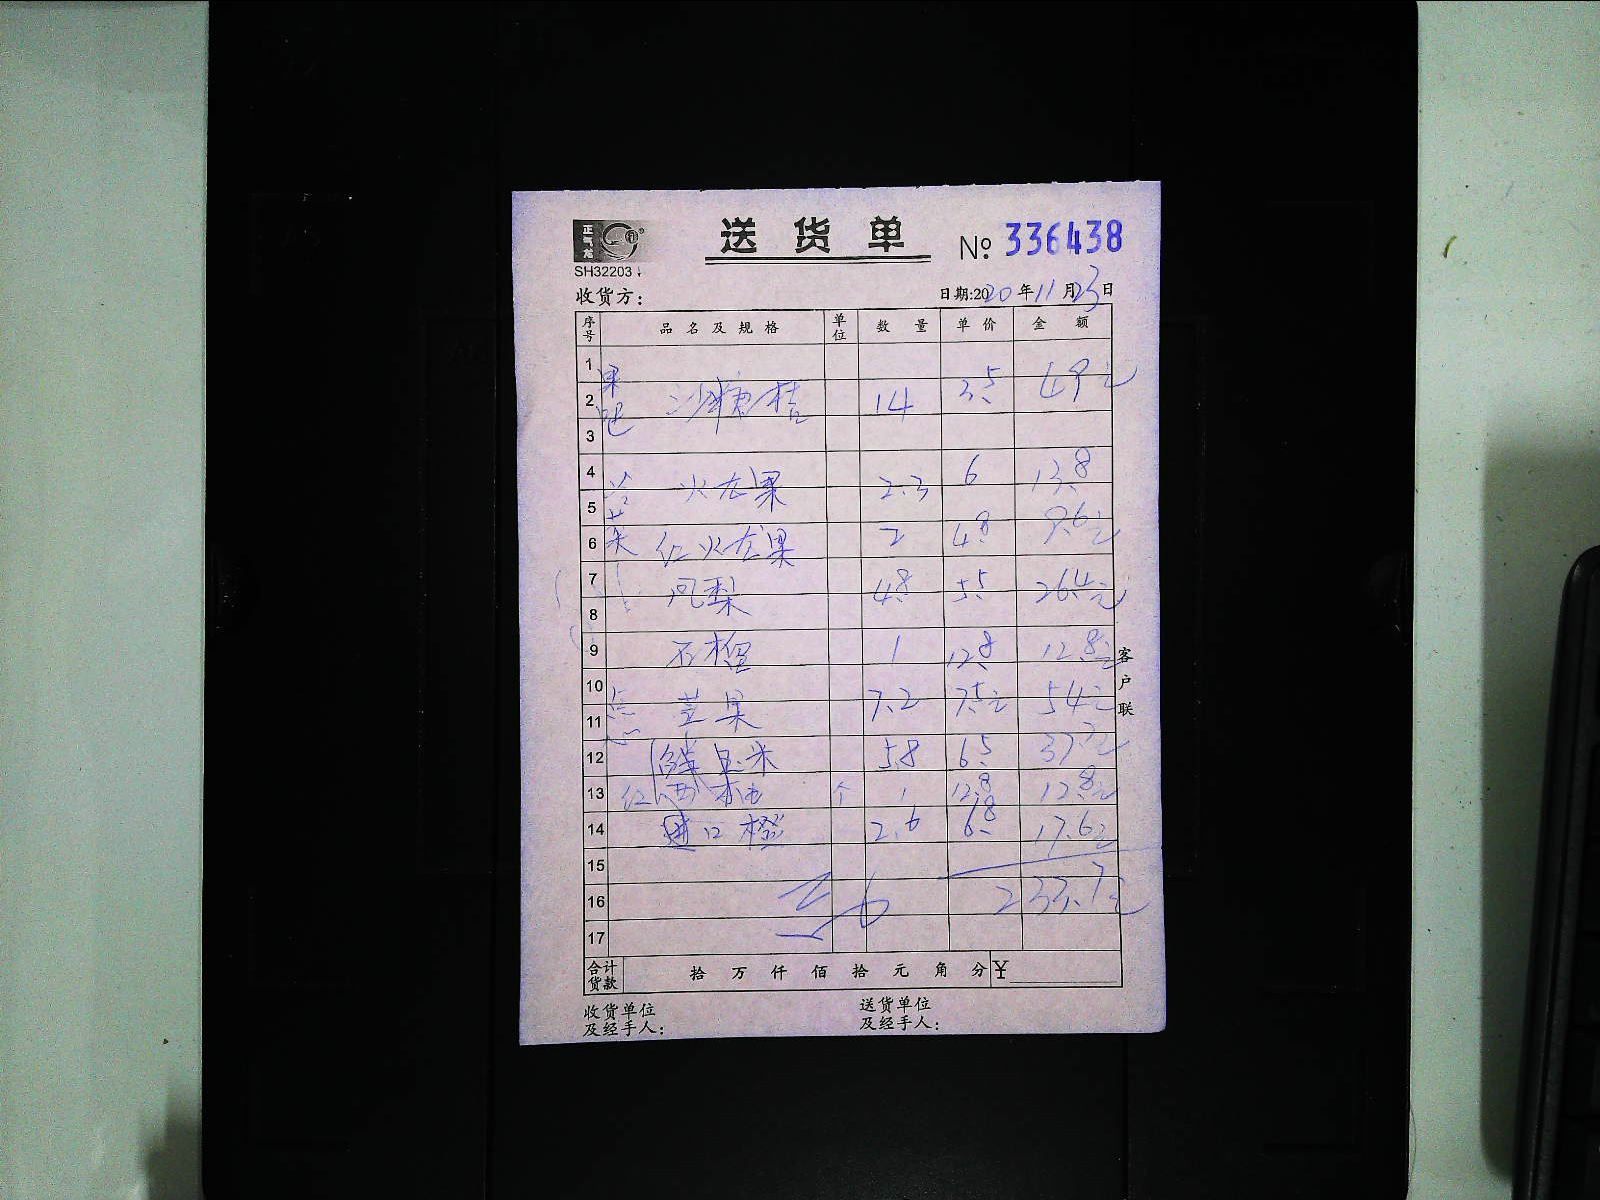 正气龙
SH32203
送货单
№ 336438
收货方：
日期:2020年11月23日
序号 品名及规格 单位 数量 单价 金额
1
果吧
2 沙糖桔 14 3.5 49元
3
4 火龙果 2.3 6 13.8
冷菜
5
6 红火龙果 2 4.8 9.6元
7 凤梨 4.8 5.5 26.4元
8
9 石榴 1 12.8 12.8元
10
点心
11 苹果 7.2 7.5元 54元
12 鲜玉米 5.8 6.5 37.7元
13 红西柚 个 1 12.8 12.8元
14 进口橙 2.6 6.8 17.6元
15
16 233.7元
17
合计货款 拾万仟佰拾元角分 ¥
客户联
收货单位
及经手人：
送货单位
及经手人：